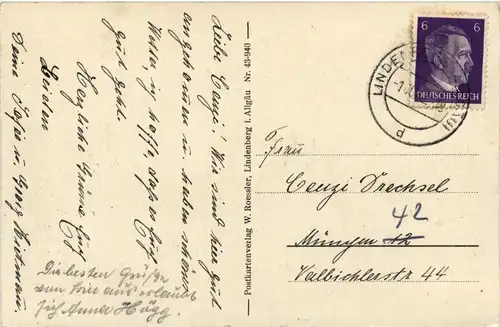 Liebe Cenzi! Wir sind hier gut
angekommen u. haben schönes
Wetter u. hoffe, daß es Euch
gut geht.
Herzliche Grüße Euch
beiden
Deine Tages u. Georg
Die besten Grüße
von hier aus erlaubt
sich Anna Högg.
Postkartenverlag W. Roessler, Lindenberg i. Allgäu Nr. 43-940
6 6
DEUTSCHES REICH
LINDENBERG
d
Frau
Cenzi Drechsel
42
München 12
Valbichlerstr 44